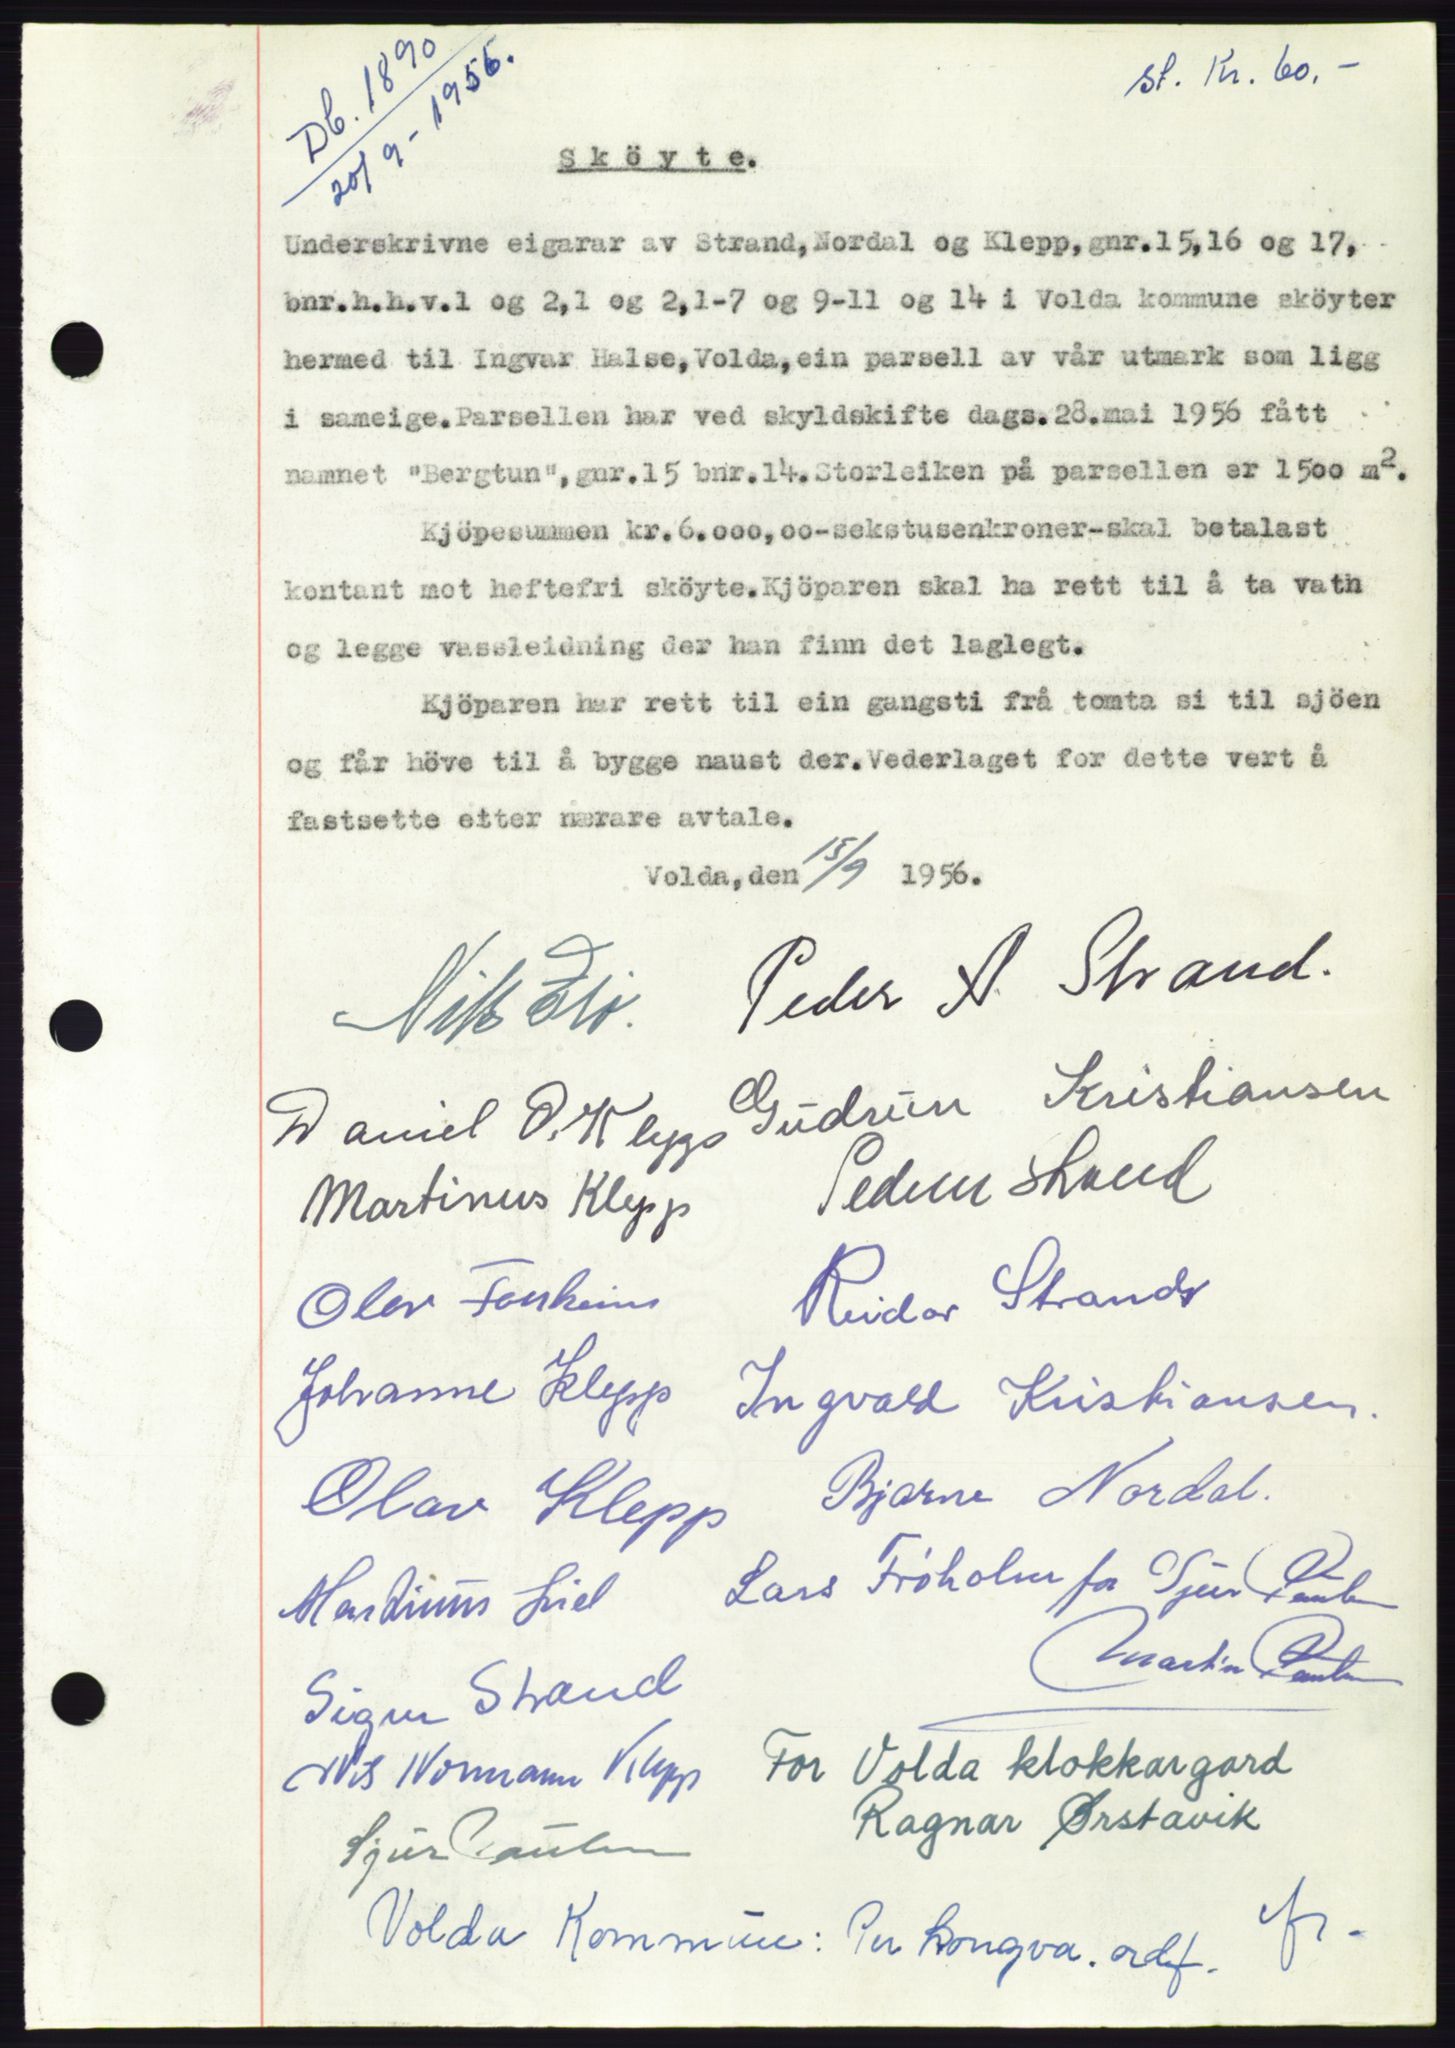 Db. 1890
20/9-1956.
st. Kr. 60.-
Sköyte.
Underskrivne eigarar av Strand,Nordal og Klepp,gnr.15,16 og 17,
bnr.h.h.v.1 og 2,1 og 2,1-7 og 9-11 og 14 i Volda kommune sköyter
hermed til Ingvar Halse,Volda,ein parsell av vår utmark som ligg
i sameige.Parsellen har ved skyldskifte dags.28.mai 1956 fått
namnet "Bergtun",gnr.15 bnr.14.Storleiken på parsellen er 1500 m².
Kjöpesummen kr.6.000,00-sekstusenkroner-skal betalast
kontant mot heftefri sköyte.Kjöparen skal ha rett til å ta vatn
og legge vassleidning der han finn det laglegt.
Kjöparen har rett til ein gangsti frå tomta si til sjöen
og får höve til å bygge naust der.Vederlaget for dette vert å
fastsette etter nærare avtale.
Volda,den 15/9 1956.
Peder A. Strand.
Daniel O. Klepp Gudrun Kristiansen
Martinus Klepp Strand
Olav Reidar Strand
Johanne Klepp Ingvald Kristiansen.
Olav Klepp Bjarne Nordal.
Lars Frøholm for Sjur Paulsen
Martin Paulsen
Strand
Nils Normann Klepp For Volda klokkargard
Ragnar Ørstavik
Sjur Paulsen
Volda Kommune: Per ordf.